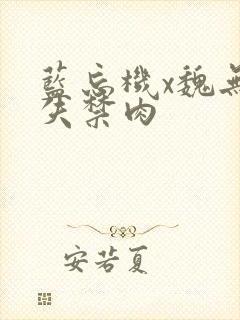 藍忘機x魏無
失禁肉
安若夏